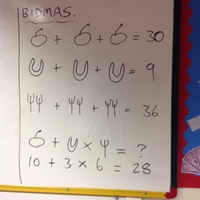 BIDMAS.
+ + = 30
+ + = 9
+ + = 36
+ × = ?
10 + 3 × 6 = 28